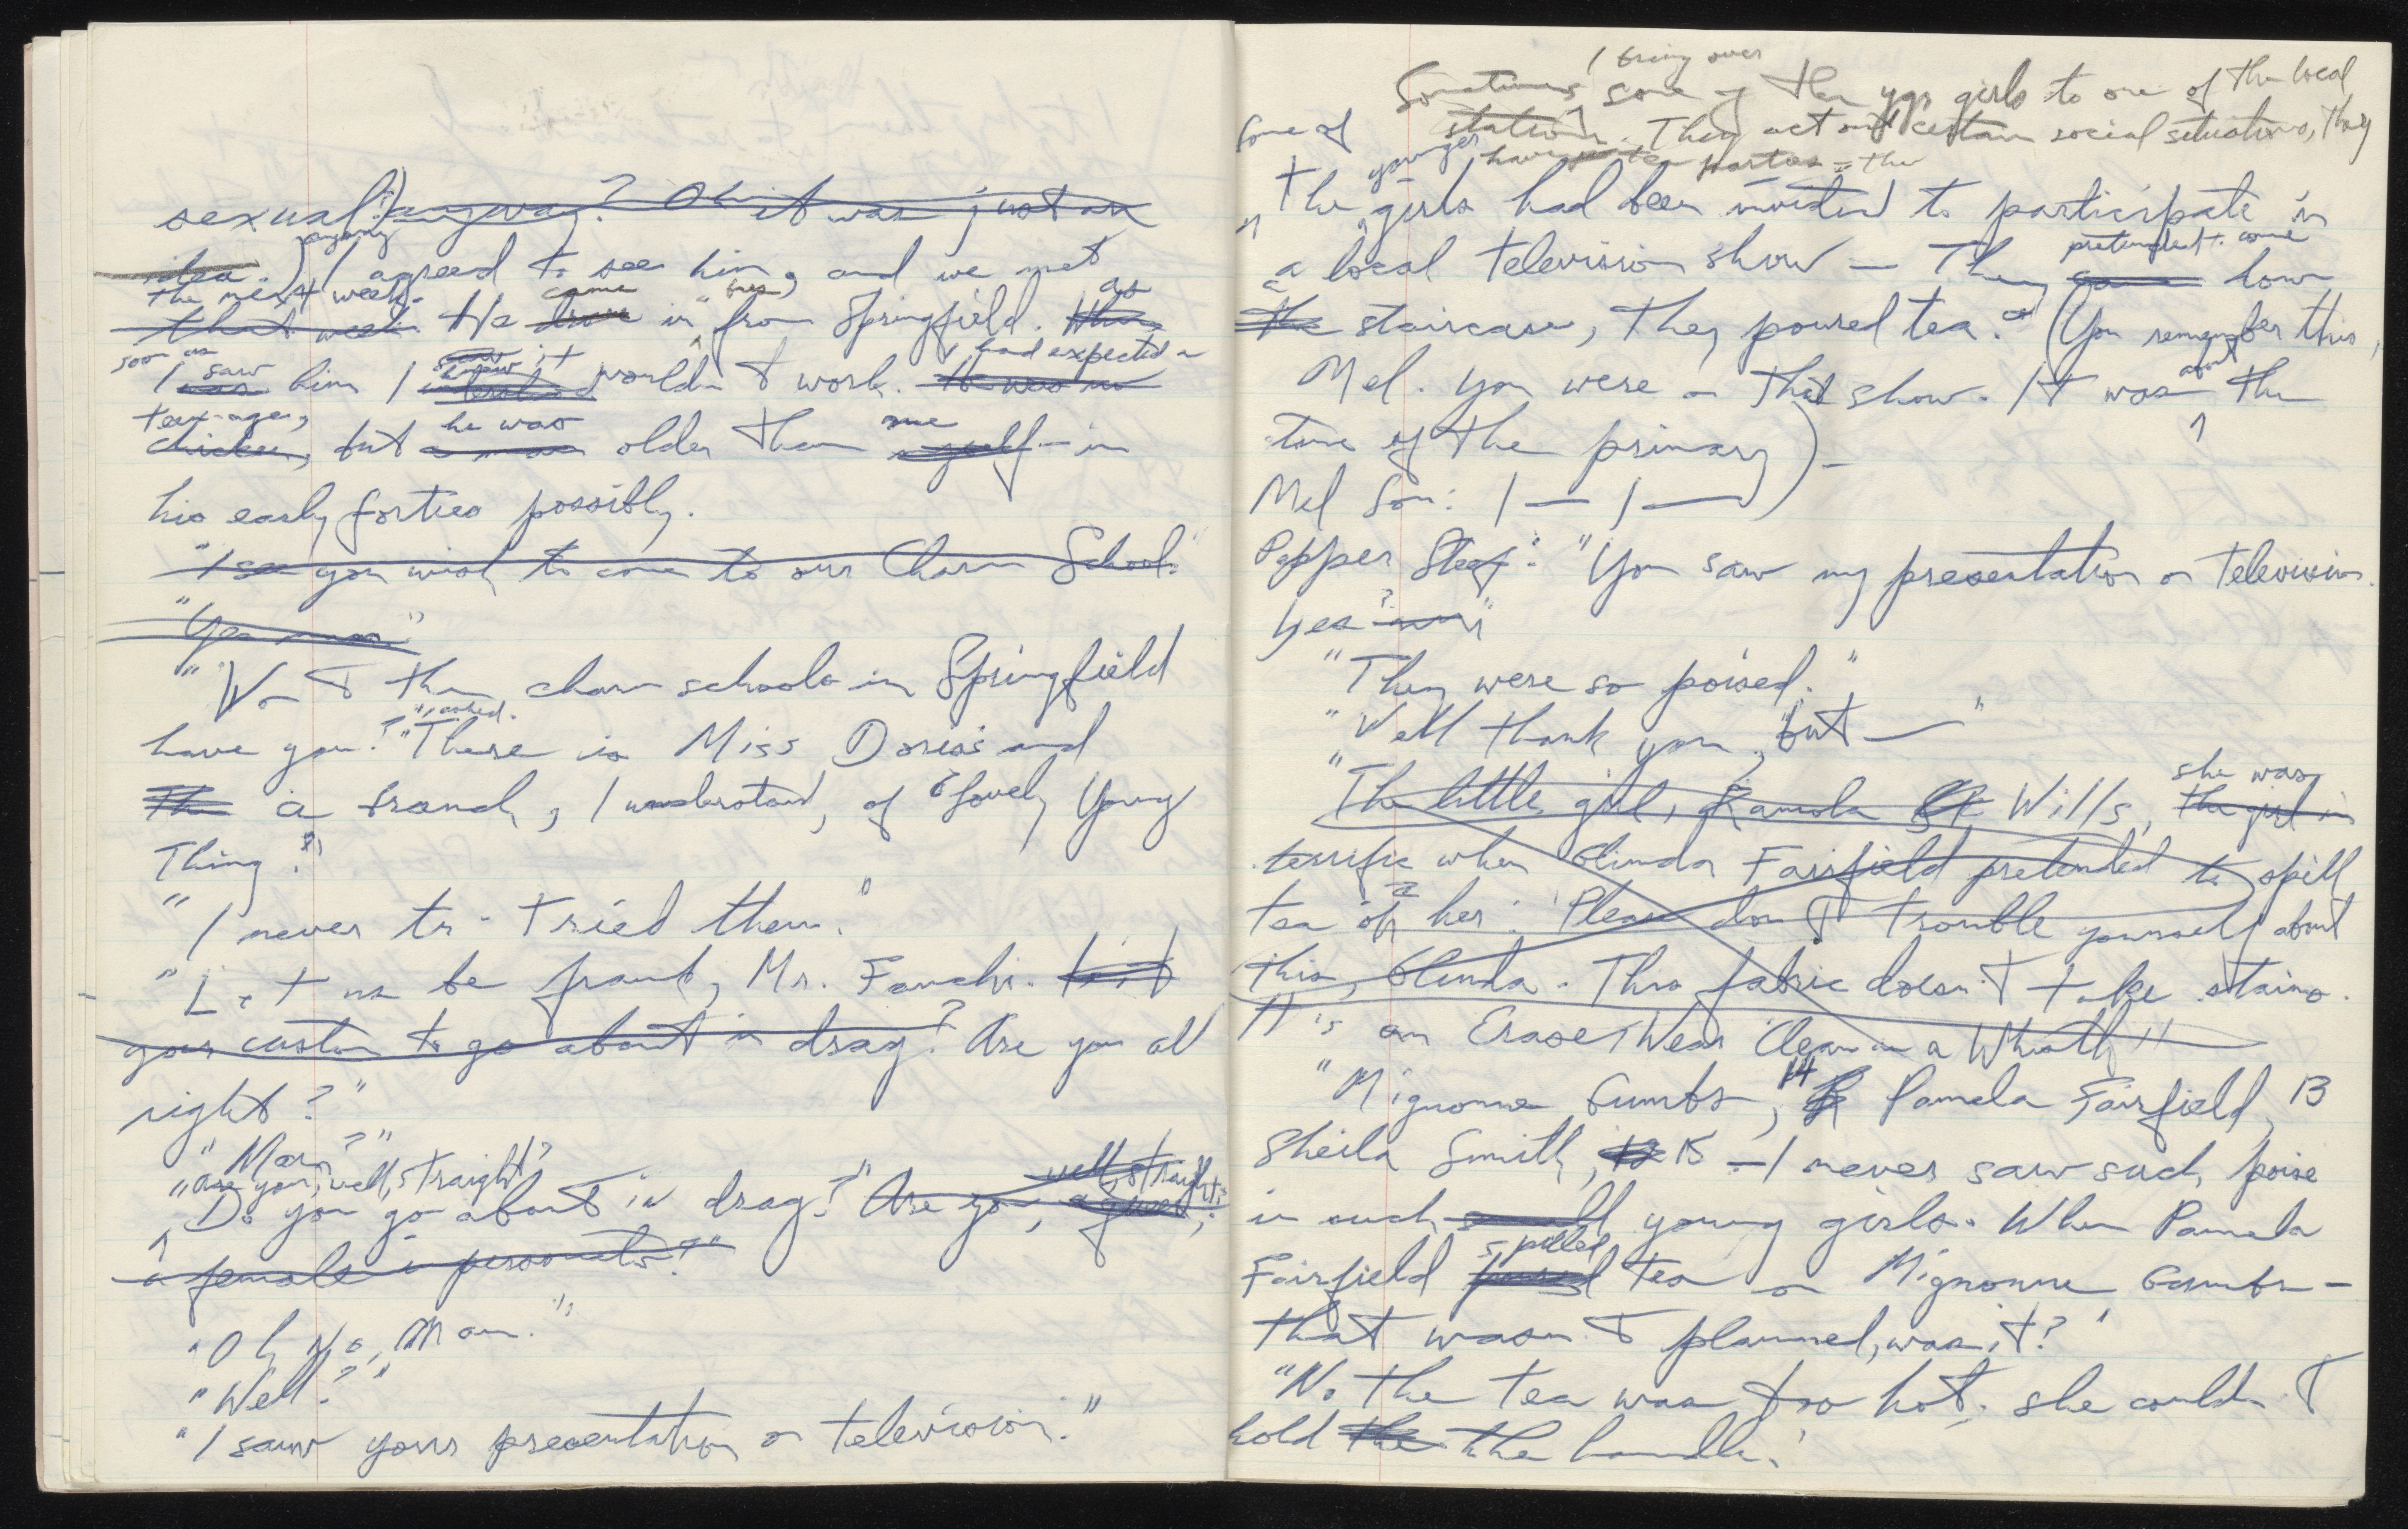 sexual?) anyway? Oh it was just an
idea.) Anyway I agreed to see him, and we met
the next week.
that week. He came drove in from Springfield. When as
soon as
I saw was him I saw it wouldn't work. He was no I had expected a
teen-ager,
chicken, but he was a man older than me myself - in
his early forties possibly.
"I see you wish to come to our Charm School."
"Yes mam."
"Won't the charm schools in Springfield
have you?" I asked. "There is Miss Doris's and
The a branch, I understand, of Lovely Young
Thing?"
"I never tr - tried them."
"Let us be frank, Mr. Fauchi. Is it
your custom to go about in drag? Are you all
right?"
"Mam?"
"Are you, well, straight?
Do you go about in drag?" Are you, well, straight,
a female impersonator?"
"Oh No, Mam."
"Well?"
"I saw your presentation on television."
I bring over
Sometimes some of the ygr girls to one of the local
stations. They act out certain social situations, they
have tea parties - the
Some of
the younger girls had been invited to participate in
a local television show — They pretended to come came down
a the staircase, they poured tea. (You remember this,
Mel. You were on that show. It was about the
time of the primary) -
Mel Son: I — I —
Pepper Steef: "You saw my presentation on television.
Yes? "
"They were so poised."
"Well thank you, but — "
"The little girl, Ramola Wills, she was the girl in
terrific when Glinda Fairfield pretended to spill
tea on her: 'Please don't trouble yourself about
this, Glinda. This fabric doesn't take stains.
It's an Erase Wear Clean in a Whistle"
"Mignonne Gumbs, 14 Pamela Fairfield, 13
Sheila Smith, 12 15 — I never saw such poise
in such small young girls. When Pamela
Fairfield spilled poured tea on Mignonne Gumbs —
that wasn't planned, was it?"
"No the tea was too hot, she couldn't
hold the the handle."